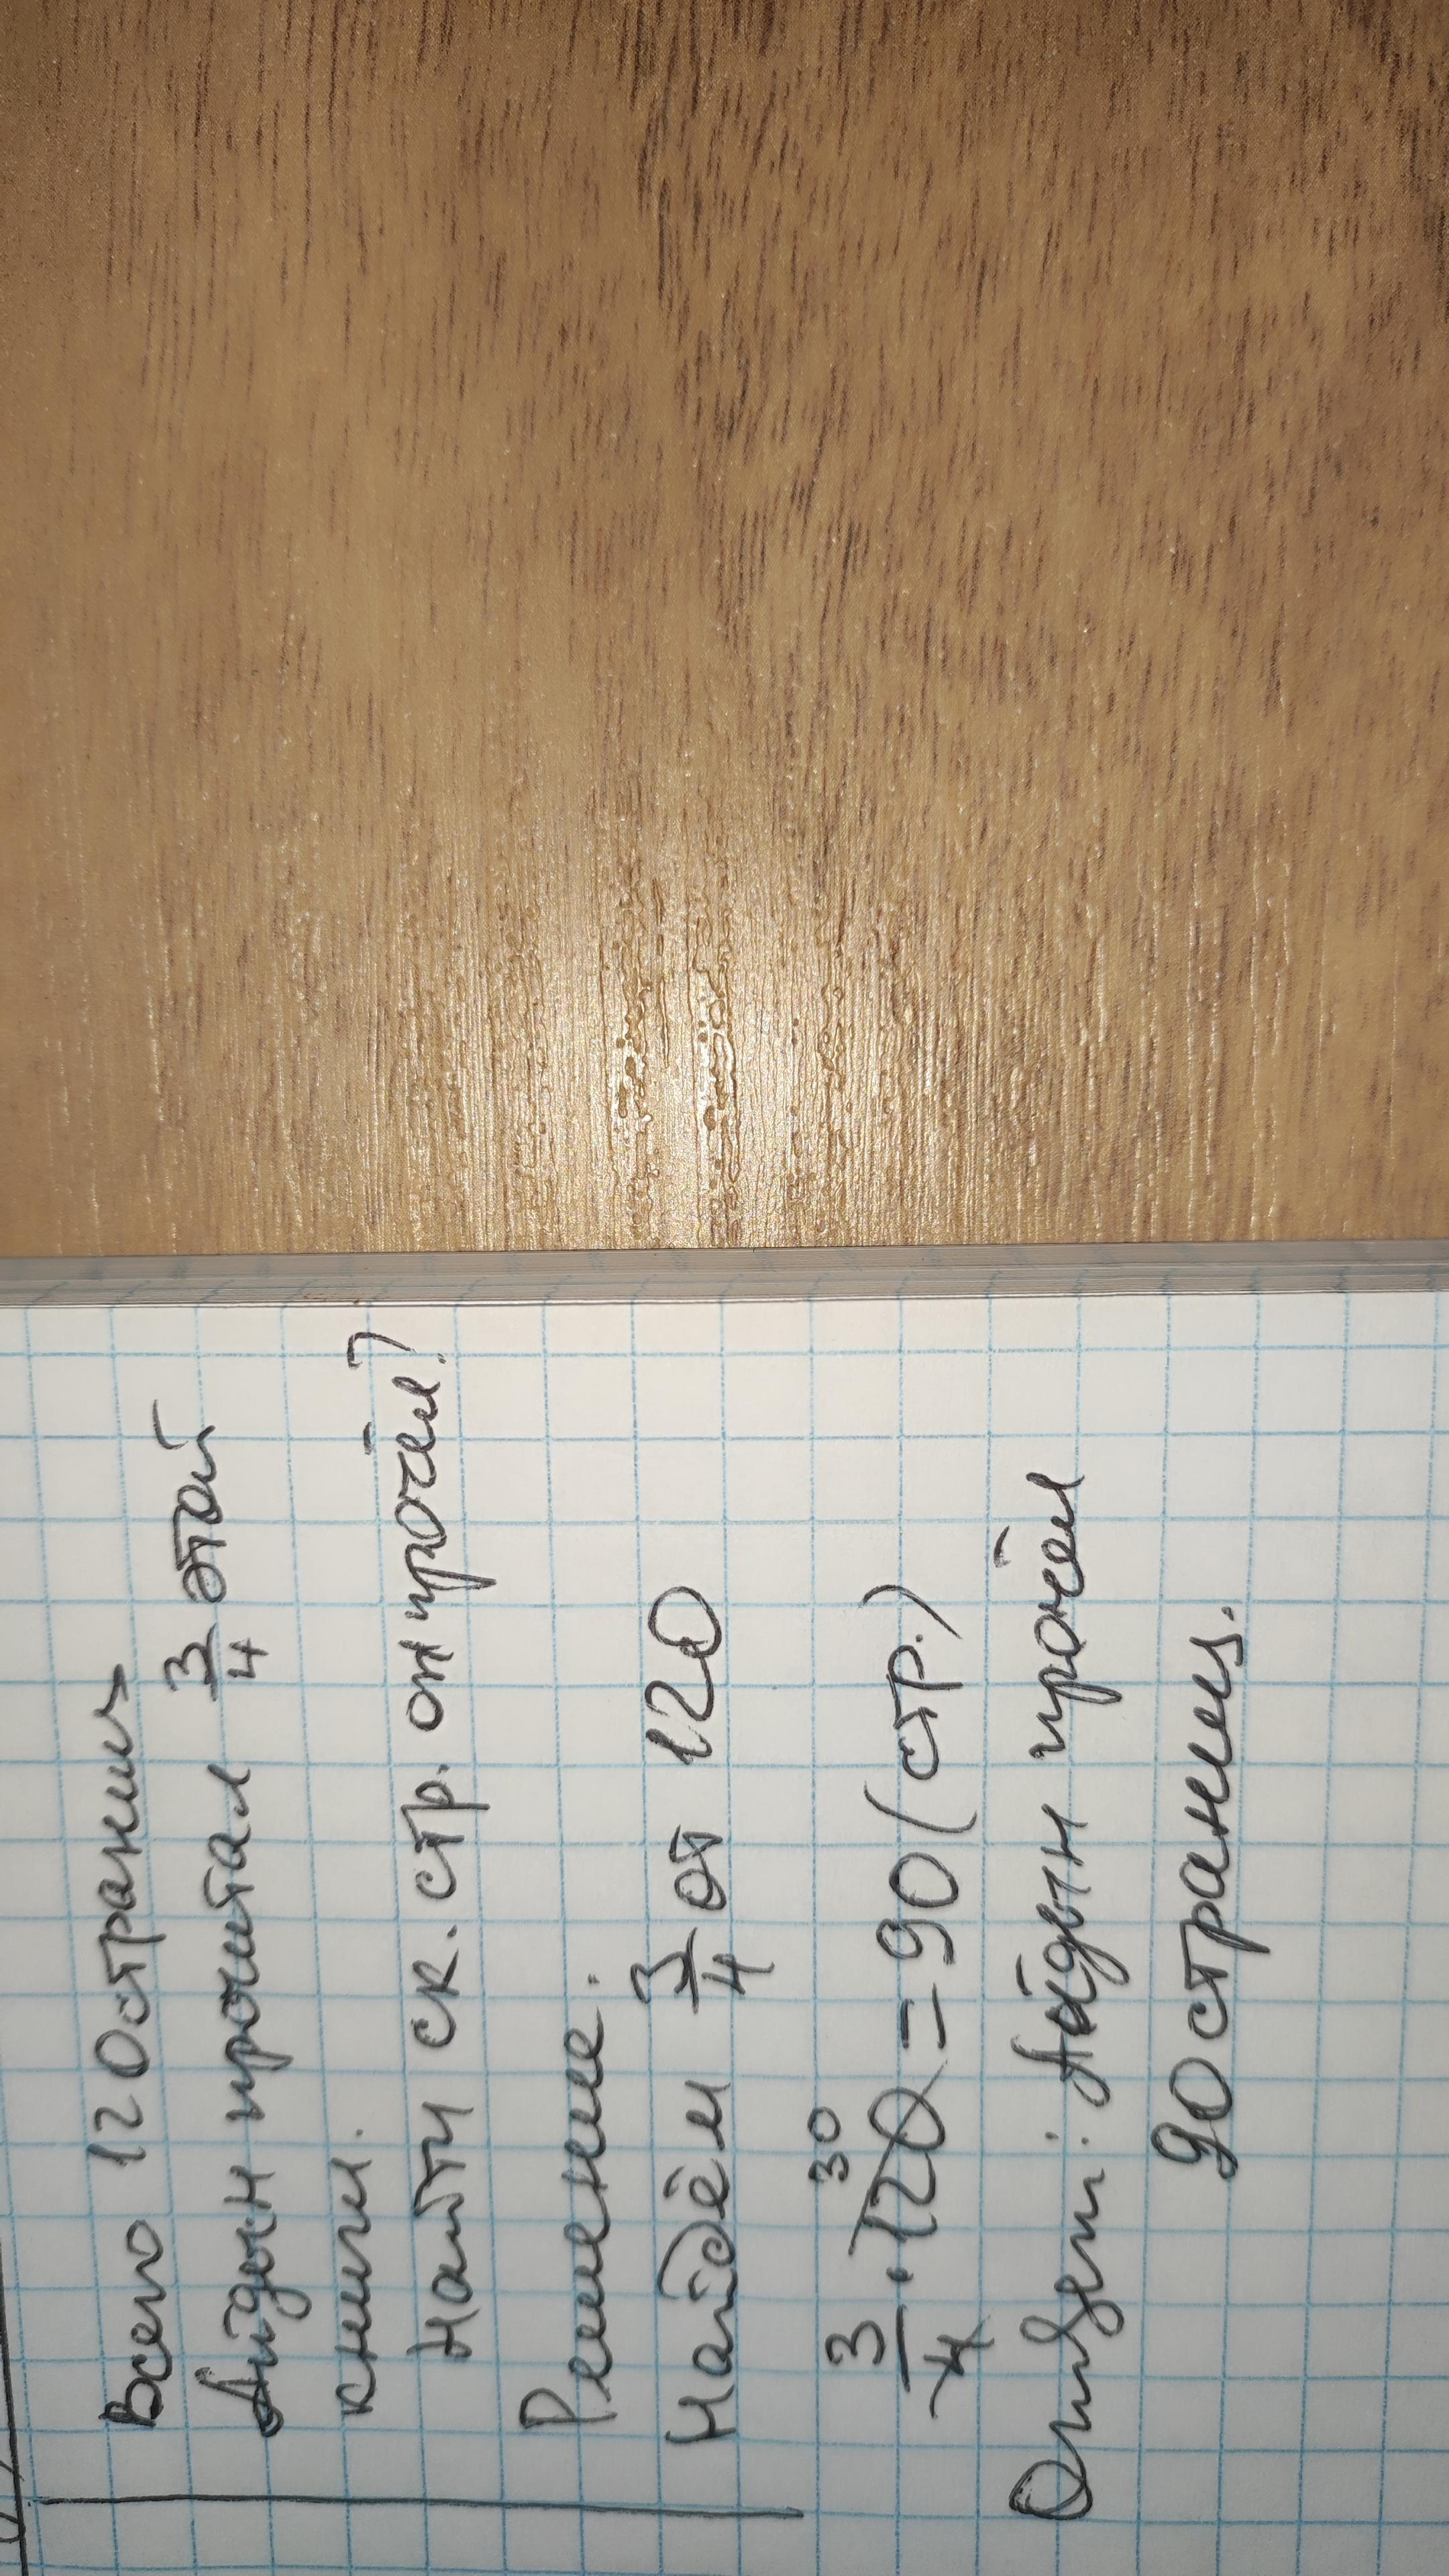 Всего 120 страниц
Айдын прочитал 3/4 этой
книги.
Найти ск. стр. он прочёл?
Решение.
Найдём 3/4 от 120
3/4 · 120 30 = 90 (стр.)
Ответ: Айдын прочёл
90 страниц.